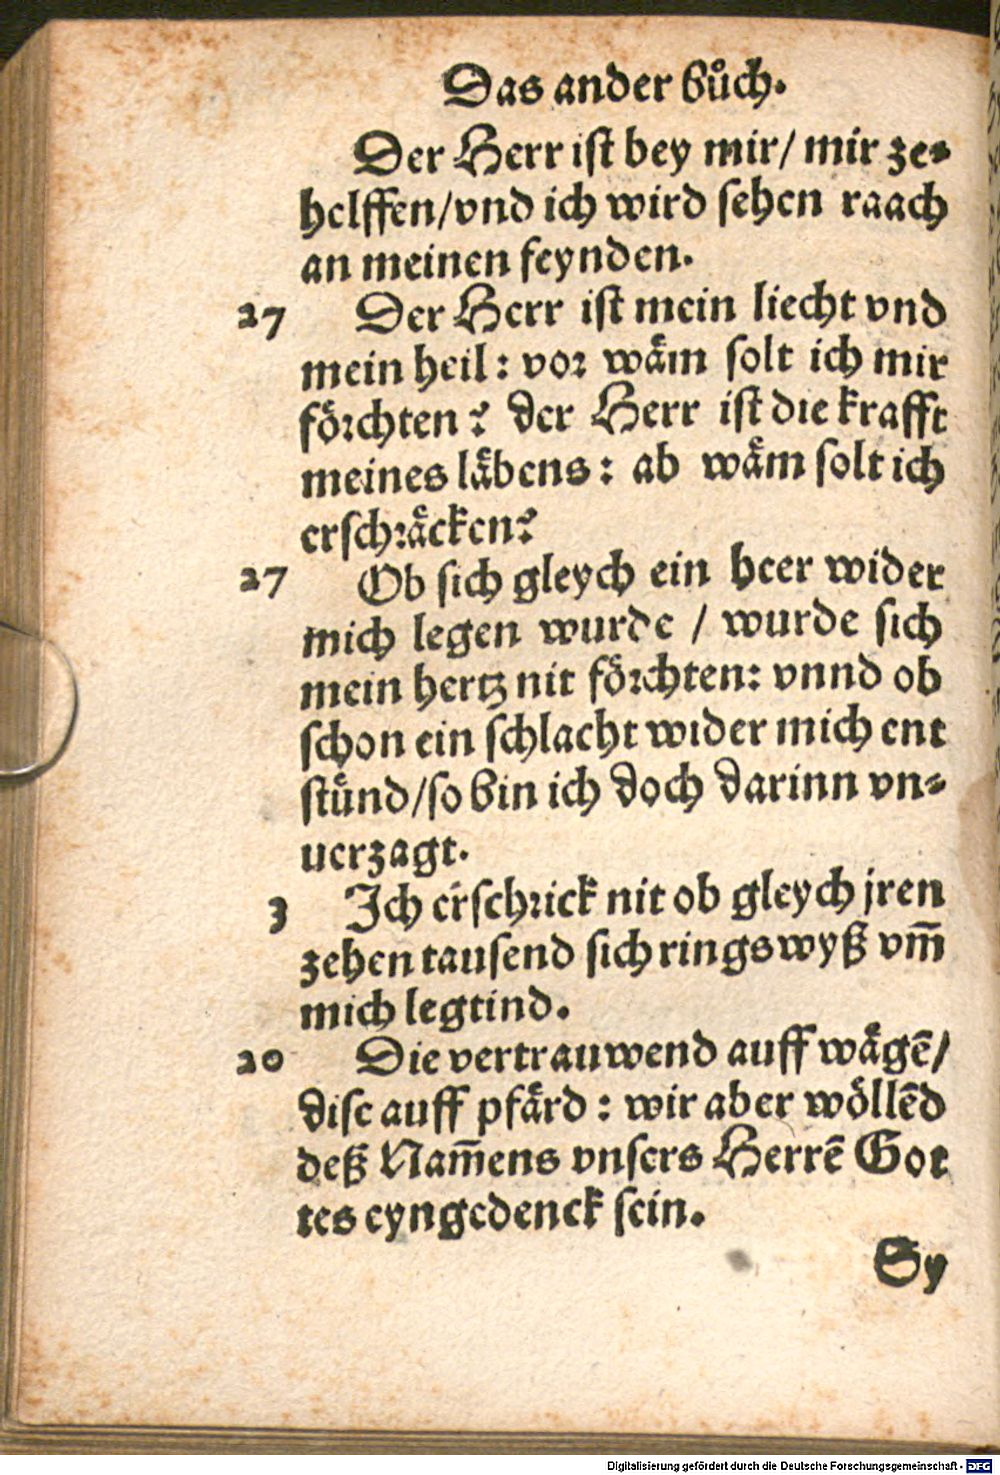 Das ander bůch.
Der Herr ist bey mir/ mir ze-
helffen/vnd ich wird sehen raach
an meinen feynden.
27 Der Herr ist mein liecht vnd
mein heil: vor wäm solt ich mir
förchten? der Herr ist die krafft
meines läbens: ab wäm solt ich
erschräcken?
27 Ob sich gleych ein heer wider
mich legen wurde / wurde sich
mein hertz nit förchten: vnnd ob
schon ein schlacht wider mich ent
stünd/so bin ich doch darinn vn-
uerzagt.
3 Ich erschrick nit ob gleych jren
zehen tausend sich rings wyß vm̄
mich legtind.
20 Die vertrauwend auff wägē/
dise auff pfärd: wir aber wöllēd
deß Nam̄ens vnsers Herrē Got
tes eyngedenck sein.
Sy
Digitalisierung gefördert durch die Deutsche Forschungsgemeinschaft - DFG